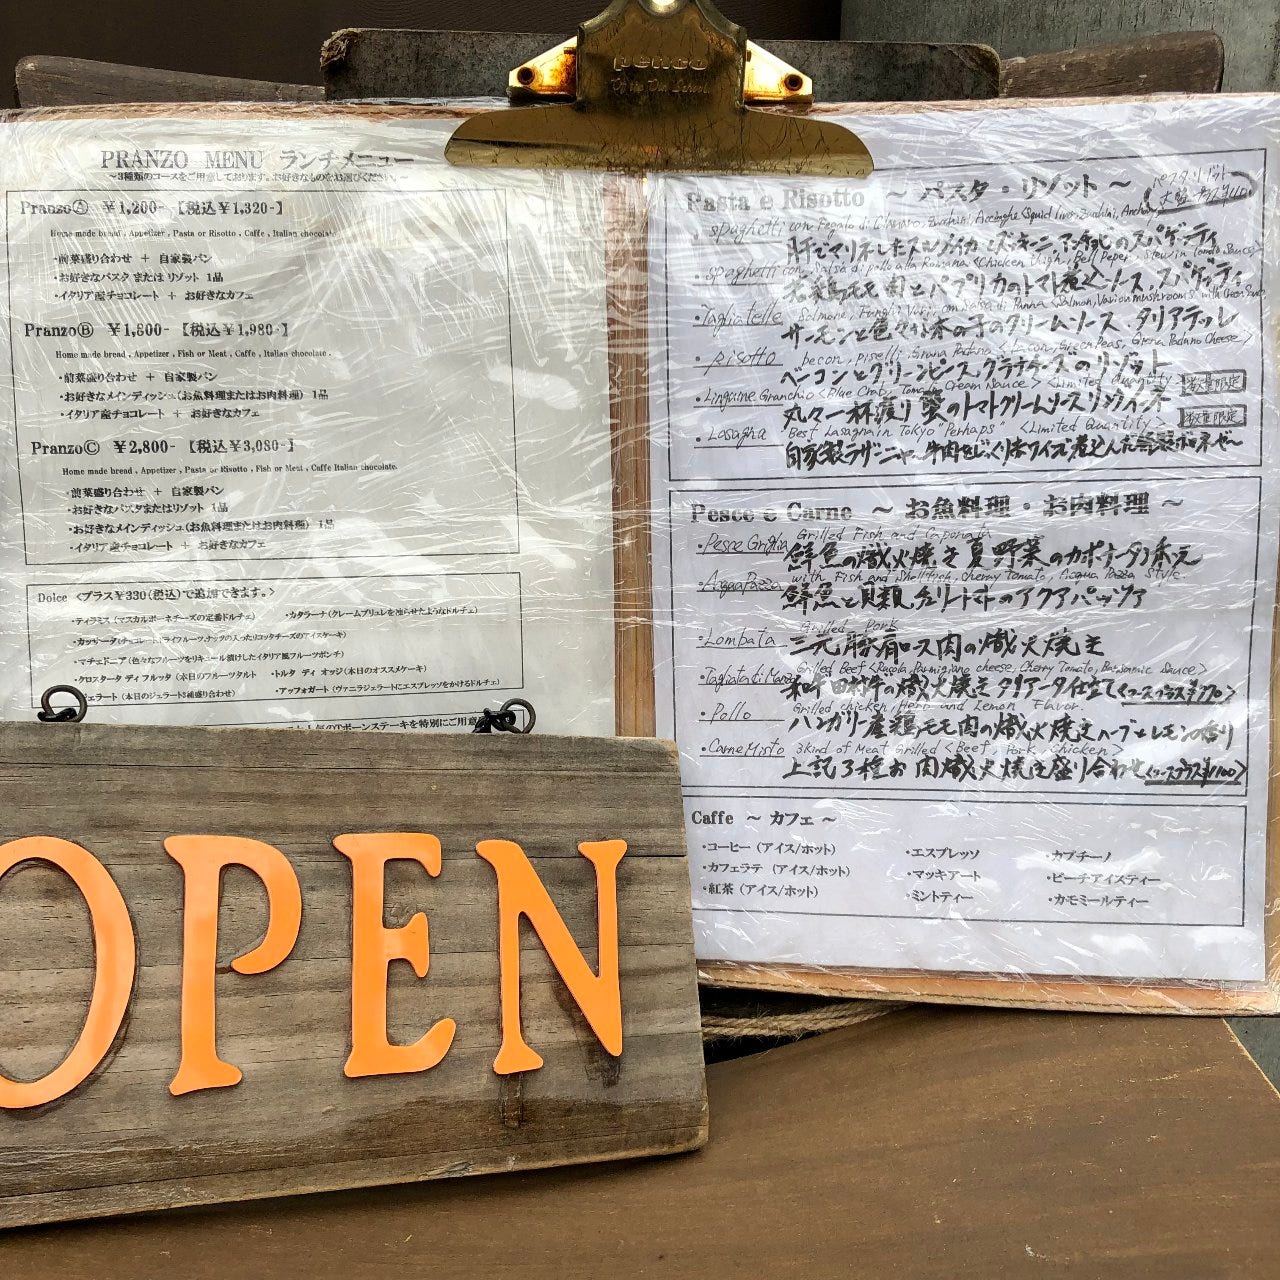 penco
PRANZO MENU ランチメニュー
~3種類のコースをご用意しております。お好きなものをお選びください。~
PranzoⒶ ¥1,200- 【税込¥1,320-】
Home made bread , Appetizer , Pasta or Risotto , Caffe , Italian chocolate
・前菜盛り合わせ + 自家製パン
・お好きなパスタ または リゾット 1品
・イタリア産チョコレート + お好きなカフェ
PranzoⒷ ¥1,800- 【税込¥1,980-】
Home made bread , Appetizer , Fish or Meat , Caffe , Italian chocolate .
・前菜盛り合わせ + 自家製パン
・お好きなメインディッシュ(お魚料理またはお肉料理) 1品
・イタリア産チョコレート + お好きなカフェ
PranzoⒸ ¥2,800- 【税込¥3,080-】
Home made bread , Appetizer , Pasta or Risotto , Fish or Meat , Caffe Italian chocolate.
・前菜盛り合わせ + 自家製パン
・お好きなパスタまたはリゾット 1品
・お好きなメインディッシュ(お魚料理またはお肉料理) 1品
・イタリア産チョコレート + お好きなカフェ
Dolce <プラス¥330(税込)で追加できます。>
・ティラミス (マスカルポーネチーズの定番ドルチェ) ・カタラーナ(クレームブリュレを凍らせたようなドルチェ)
・カッサータ(チョコレート,ドライフルーツ,ナッツの入ったリコッタチーズのアイスケーキ)
・マチェドニア(色々なフルーツをリキュール漬けしたイタリア風フルーツポンチ)
・クロスタータ ディ フルッタ (本日のフルーツタルト ・トルタ ディ オッジ(本日のオススメケーキ)
ジェラート (本日のジェラート3種盛り合わせ) ・アッフォガート (ヴァニラジェラートにエスプレッソをかけるドルチェ)
Tボーンステーキを特別にご用意
OPEN
Pasta e Risotto ~ パスタ・リゾット ~
パスタ・リゾット
大盛
・Spaghetti con Fegato di
肝でマリネしたスルメイカとズッキーニ、アンチョビのスパゲッティ
・Spaghetti con salsa di pollo alla Romana <Chicken thigh, Bell Peper, stew in Tomato Sauce>
若鶏モモ肉とパプリカのトマト煮込ソース、スパゲッティ
・Tagliatelle Salmone, Funghi Vari, con salsa di Panna <Salmon, Various mushrooms with Cream Sauce>
サーモンと色々な木の子のクリームソース、タリアテッレ
・Risotto becon, Piselli, Grana Padano <bacon, Green Peas, Grana Padano Cheese>
ベーコンとグリーンピース、グラナチーズのリゾット
・Linguine Granchio <Blue Crab, Tomato Cream Sauce> <Limited quantity> 数量限定
丸々一杯渡り蟹のトマトクリームソースリングイーネ
・Lasagna Best Lasagna in Tokyo "Perhaps" <Limited Quantity> 数量限定
自家製ラザーニャ 牛肉をじっくり赤ワインで煮込んだ自家製ボロネーゼ
Pesce e Carne ~ お魚料理・お肉料理 ~
・Pesce Griglia Grilled Fish and Caponata
鮮魚の熾火焼き 夏野菜のカポナータ添え
・Acqua Pazza with Fish and Shellfish, cherry tomato, Acqua Pazza Style.
鮮魚と貝類、チェリートマトのアクアパッツァ
・Lombata Grilled Pork
三元豚肩ロース肉の熾火焼き
・Tagliata di Manzo Grilled Beef <Rucola, Parmigiano cheese, Cherry Tomato, Barsamic Sauce>
和牛 田村牛の熾火焼き タリアータ仕立て <コースプラス¥770>
・Pollo Grilled chicken, Herb and Lemon Flavor.
ハンガリー産鶏モモ肉の熾火焼き ハーブとレモンの香り
・Carne Misto 3 kind of Meat Grilled <Beef, Pork, Chicken>
上記3種お肉熾火焼き盛り合わせ <コースプラス¥1100>
Caffe ~ カフェ ~
・コーヒー (アイス/ホット) ・エスプレッソ ・カプチーノ
・カフェラテ (アイス/ホット) ・マッキアート ・ピーチアイスティー
・紅茶 (アイス/ホット) ミントティー ・カモミールティー